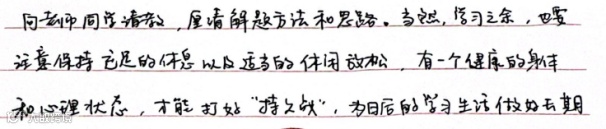 向老师同学请教，厘清解题方法和思路。当然，学习之余，也要
注意保持充足的休息以及适当的休闲放松，有一个健康的身体
和心理状态，才能打好“持久战”，为日后的学习生活做好长期